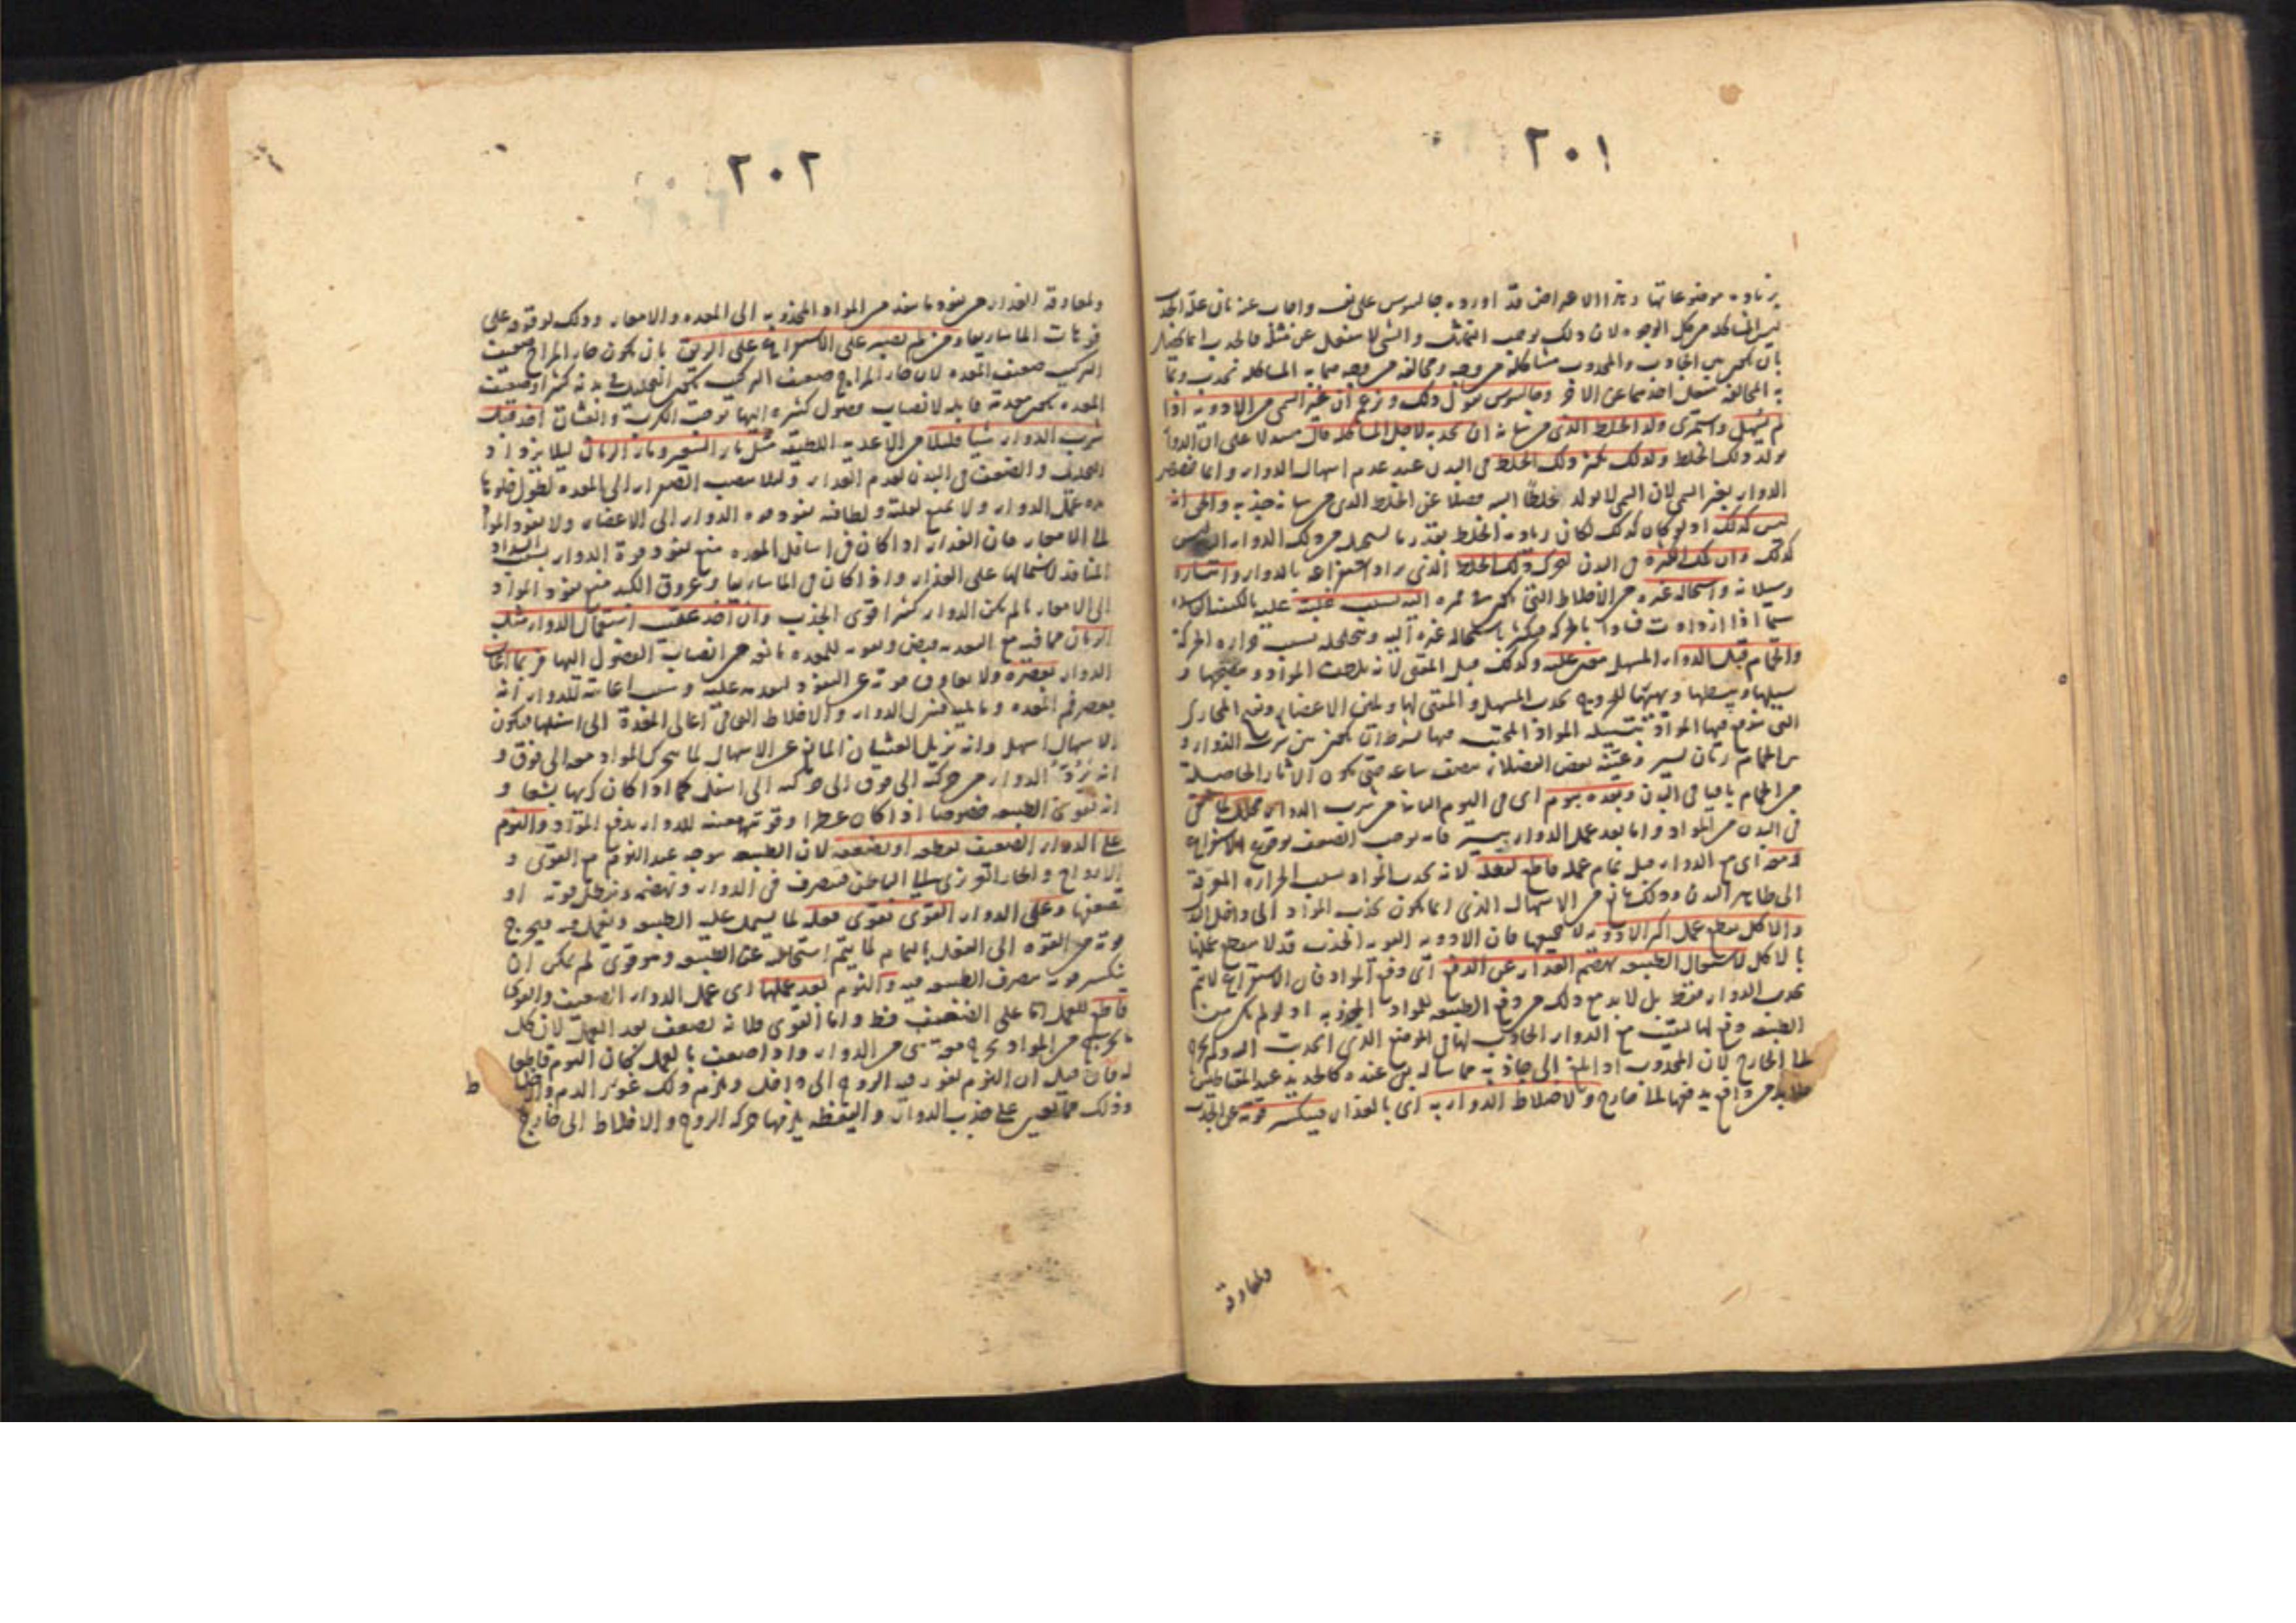 ٢٠١
بزيادة موضوعاتها وهذا الاعراض قد اورده جالينوس على نفسه واجاب عنه بان علة الجذب
ليس المشاكلة من كل الوجوه لان ذلك يوجب والشي لا ينفعل عن مثله فالجذب انما
بان يكون بين الجاذب والمجذوب مشاكلة من وجه ومخالفة من وجه فما به المشاكلة تجذب وبما
به المخالفة ينفعل احدهما عن الاخر وجالينوس يقول ذلك وزعم ان غير السمي من الادوية اذا
لم يسهل واستمرى ولد الخلط الذي من شانه ان يجذبه لاجل المشاكلة قال مستدلا على ان الدواء
يولد ذلك الخلط ولذلك يكثر ذلك الخلط في البدن عند عدم اسهال الدواء وانما خصص
الدواء بغير السمي لان السمي لا يولد خلطا البتة فضلا عن الخلط الذي من شانه جذبه والحق انه
ليس كذلك اذ لو كان كذلك لكان زيادة الخلط بقدر ما يستحيل من ذلك الدواء وليس
كذلك وان تلك الكثرة في البدن لتحرك ذلك الخلط الذي يراد استفراغه بالدواء وانتشاره
وسيلانه واستحالة غيره من الاخلاط التي اليه بسبب غلبته عليه بالكيفية
سيما اذا ازدادت فسادا بالحركة فيكثر باستحالة غيره اليه وتخلخله بسبب حرارة الحركة
والحمام قبل الدواء المسهل معين عليه وكذلك قبل المقيى لانه يلطف المواد وينضجها و
يسيلها ويهيئها للخروج بجذب المسهل والمقيى لها ويلين الاعضاء ويفتح المجارى
التي تندفع فيها المواد بتسييله المواد المحتبسة فيها بشرط ان يكون بين شرب الدواء و
بين الحمام زمان يسير بعض الفضلاء بنصف ساعة حتى يكون الاثار الحاصلة
من الحمام باقيا في البدن وبعده بيوم اى في اليوم الثانى من شرب الدواء محلل لما بقى
في البدن من المواد واما بعد عمل الدواء بيسير فانه يوجب الضعف بوقوع الاستفراغ
ومعه اى مع الدواء قبل تمام عمله قاطع لفعله لانه يجذب المواد بسبب الحرارة
الى ظاهر البدن وذلك مانع من الاسهال الذي انما يكون بجذب المواد الى داخل البدن
والاكل يقطع عمل اكثر الادوية لا جميعها فان الادوية القوية الجذب قد لا يقطع عملها
بالاكل لاشتغال الطبيعة بهضم الغذاء عن الدفع اى دفع المواد فان الاستفراغ لا يتم
بجذب الدواء فقط بل لا بد مع ذلك من دفع الطبيعة للمواد المجذوبة اذ لو لم يكن من
الطبيعة دفع لها لبقيت مع الدواء الجاذب لها في الموضع الذي انجذبت اليه ولم يخرج
الى الخارج لان المجذوب اذا الى جاذبه يبقى عنده كالحديد عند المغناطيس
فلا بد من دافع يدفعها الى خارج ولاختلاط الدواء به اى بالغذاء فيكسر قوته عن الجذب
ولمعاوقة
٢٠٢
ولمعاوقة الغذاء عن نفوذ ما ينفذ من المواد المجذوبة الى المعدة والامعاء وذلك لوقوفه على
فوهات الماساريقا ومن لم يصبر على الاستفراغ على الريق بان يكون حار المزاج ضعيف
التركيب ضعيف المعدة لان حار المزاج ضعيف التركيب يكون التحليل في بدنه كثيرا وضعيف
المعدة يكون معدته قابلة لانصباب فضول كثيرة اليها توجب الكرب والغشيان اخذ قبل
شرب الدواء شيا قليلا من الاغذية اللطيفة مثل ماء الشعير وماء الرمان ليلا يزداد
التحليل والضعف في البدن لعدم الغذاء وليلا ينصب الصفراء الى المعدة لطول خلوها
مدة عمل الدواء ولا يمنع لقلته ولطافته نفوذ قوة الدواء الى الاعضاء ولا نفوذ المواد
الى الامعاء فان الغذاء اذا كان في اسافل المعدة منع نفوذ قوة الدواء بسبب انسداد
المنافذ لاشتمالها على الغذاء واذا كان في الماساريقا وعروق الكبد منع نفوذ المواد
الى الامعاء ما لم يكن الدواء كثيرا قوى الجذب وان اخذ عقيب استعمال الدواء مثل
الرمان مما فيه مع التغذية قبض وتقوية للمعدة مانعة عن انصباب الفضول اليها فربما اعان
الدواء بعصره ولا يعاوق قوته عن النفوذ لتقدمه عليه وسبب اعانته للدواء انه
يعصر فم المعدة وما يليه فينزل الدواء والاخلاط التي في اعالى المعدة الى اسفلها فيكون
الاسهال اسهل وانه يزيل الغثيان المانع عن الاسهال لما يحرك المواد معه الى فوق و
انه يرد الدواء من حركته الى فوق الى حركته الى اسفل كما اذا كان كريها بشعا و
انه يقوى الطبيعة خصوصا اذا كان عطرا وقوتها معينة للدواء بدفع المواد والنوم
على الدواء الضعيف يقطعه او يضعفه لان الطبيعة يتوجه عند النوم مع القوى و
الارواح والحار الغريزى الى الباطن فيتصرف في الدواء وتهضمه ويبطل قوته او
تضعفها وعلى الدواء القوى يقوى فعله لما يستعمل عليه الطبيعة ويعمل فيه فيخرج
قوته من القوة الى الفعل بالتمام لما يتم استحالته عن الطبيعة وهو قوى لم يمكن ان
ينكسر قوته بتصرف الطبيعة فيه والنوم بعد عملها اى عمل الدواء الضعيف والقوى
قاطع للعمل اما على الضعيف فظ واما القوى فلانه يضعف بعد العمل لان كل
ما يخرج من المواد يخرج معه شى من الدواء واذا ضعف بالعمل كان النوم قاطعا
له فان قيل ان النوم يغور فيه الروح الى داخل ويلزم ذلك غور الدم والاخلاط
وذلك مما يعين على جذب الدواء واليقظة يلزمها حركة الروح والاخلاط الى خارج
ط